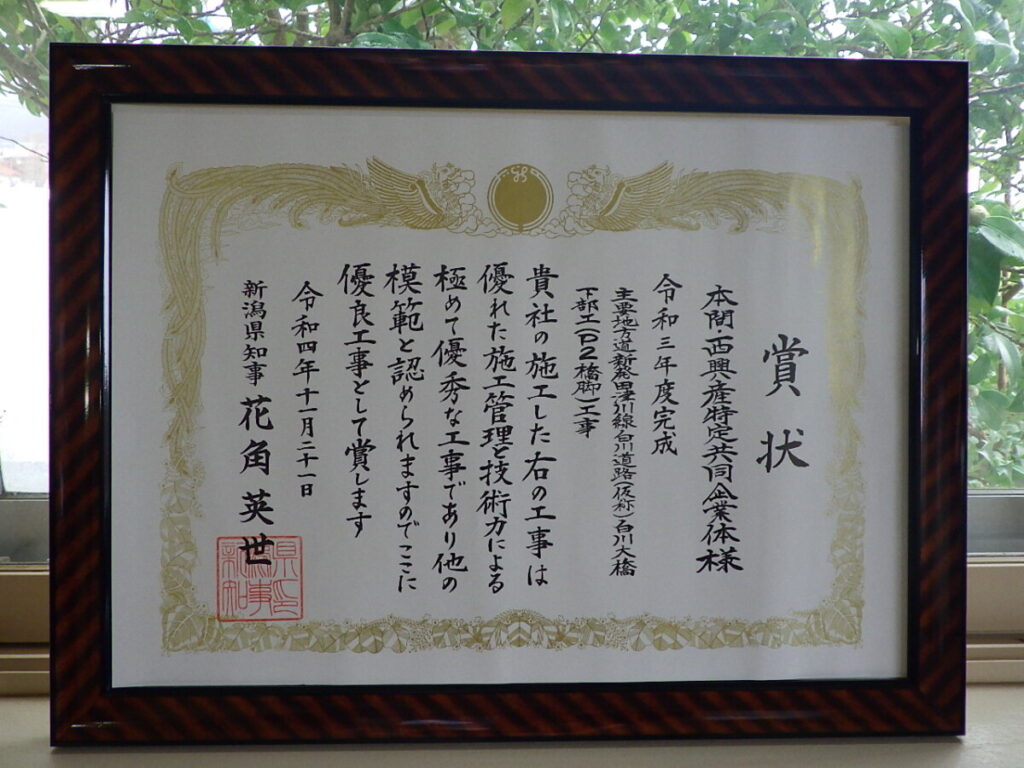 賞状
本間・西興産特定共同企業体様
令和三年度完成
主要地方道新発田津川線白川道路(仮称)白川大橋
下部工(P2橋脚)工事
貴社の施工した右の工事は
優れた施工管理と技術力による
極めて優秀な工事であり他の
模範と認められますのでここに
優良工事として賞します
令和四年十一月二十一日
新潟県知事 花角英世